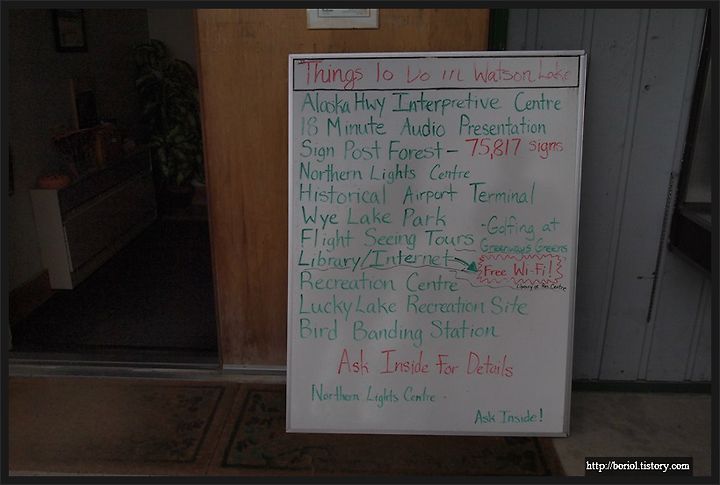 Things To Do In Watson Lake
Alaska Hwy Interpretive Centre
18 Minute Audio Presentation
Sign Post Forest - 75,817 signs
Northern Lights Centre
Historical Airport Terminal
Wye Lake Park
Flight Seeing Tours
- Golfing at
Greenways Greens
Library/Internet
Free Wi-Fi!
Library at Rec Centre
Recreation Centre
Lucky Lake Recreation Site
Bird Banding Station
Ask Inside For Details
Northern Lights Centre -
Ask Inside!
http://boriol.tistory.com